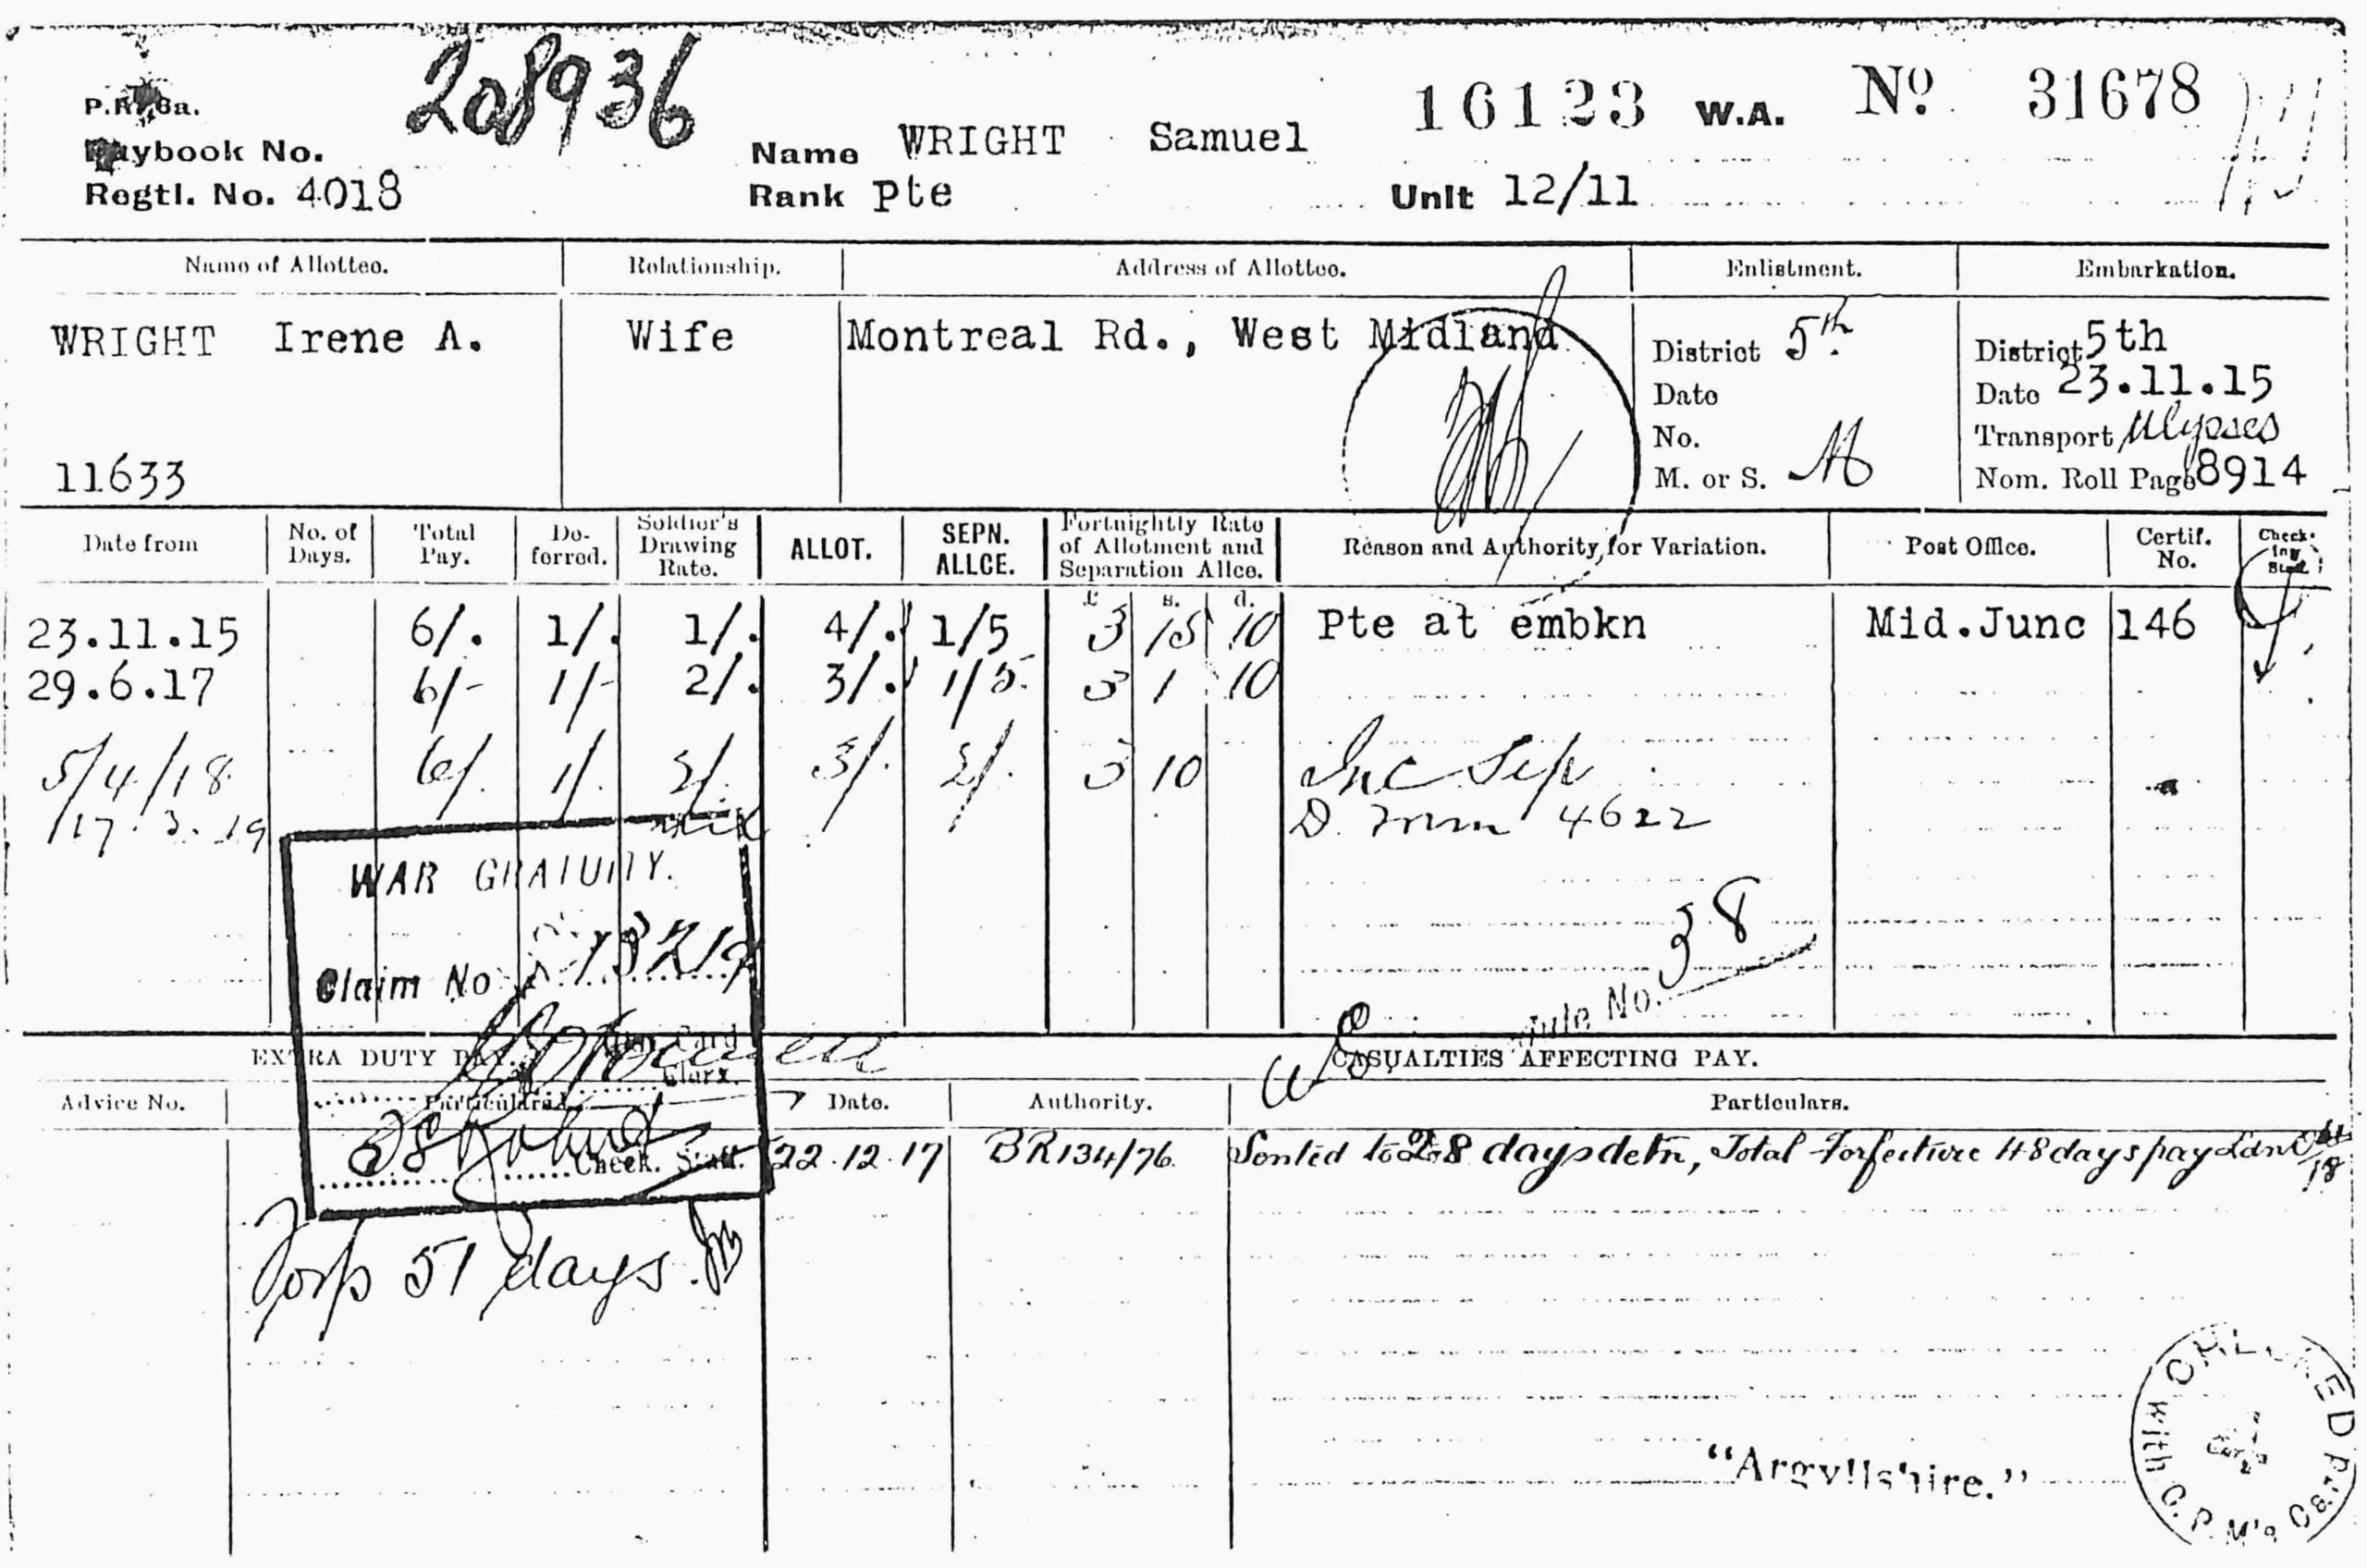 P.R. 6a. 208936 16123 W.A. Nº 31678
Paybook No.
Name WRIGHT Samuel
Regtl. No. 4018 Rank Pte Unit 12/11
Name of Allottee. Relationship. Address of Allottee. Enlistment. Embarkation.
WRIGHT Irene A. Wife Montreal Rd., West Midland District 5th District 5th
Date Date 23.11.15
No. Transport Ulysses
11633 M. or S. M Nom. Roll Page 8914
Date from No. of Days. Total Pay. Deferred. Soldier's Drawing Rate. ALLOT. SEPN. ALLCE. Fortnightly Rate of Allotment and Separation Allce. Reason and Authority for Variation. Post Office. Certif. No. Check-ing
£ s. d.
23.11.15 6/. 1/. 1/. 4/. 1/5 3 15 10 Pte at embkn Mid.Junc 146
29.6.17 6/- 1/- 2/. 3/. 1/5. 3 1 10
5/4/18 6/. 1/. 2/. 3/. 2/. 3 10 Inc Sep
17.3.19 D. 4622
WAR GRATUITY.
38
Claim No 13219
No.
EXTRA DUTY PAY. Card CASUALTIES AFFECTING PAY.
Clerk.
Advice No. Particulars. Date. Authority. Particulars.
Check. Staff. 22.12.17 BR134/76. Sented to 28 days detn, Total Forfeiture 48 days pay
Forf 51 days.
"Argyllshire."
CHECKED with C.P.M's Card